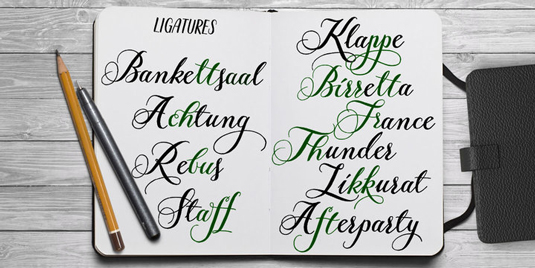 LIGATURES
Bankettsaal
Achtung
Rebus
Staff
Klappe
Birretta
France
Thunder
Likkurat
Afterparty